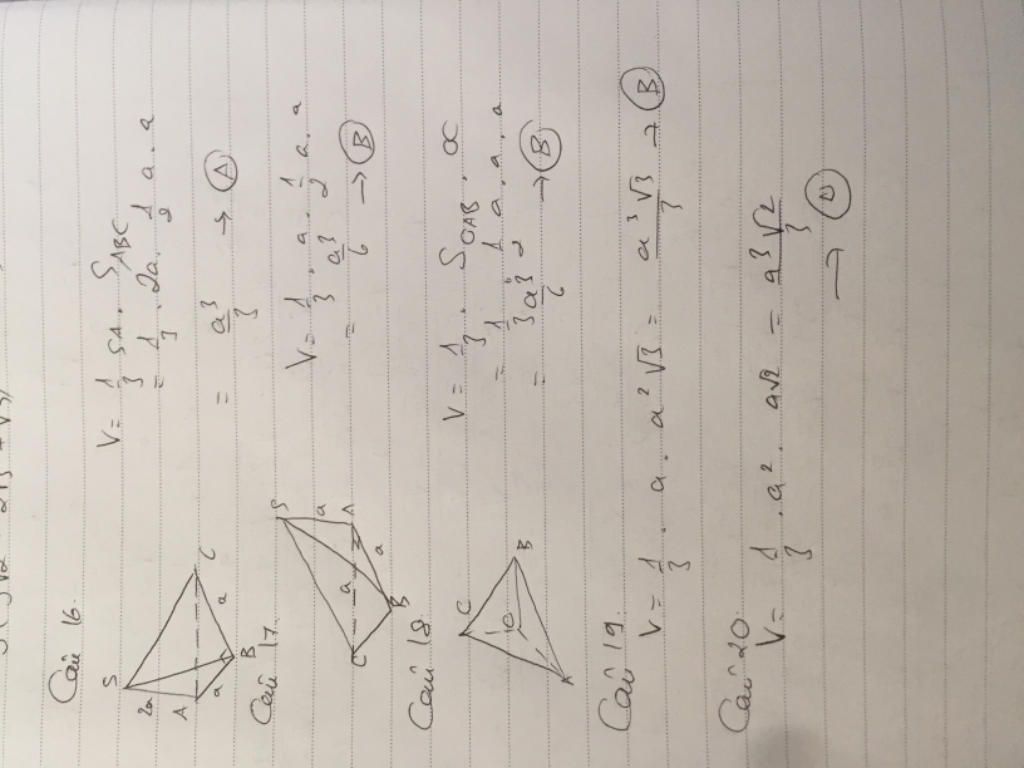 Câu 16.
S
2a
A
a
B
a
C
V = 1/3 SA . S_ABC
= 1/3 . 2a . 1/2 a . a
= a³/3 → Ⓐ
Câu 17.
S
a
A
a
a
C
B
V = 1/3 . a . 1/2 a . a
= a³/6 → Ⓑ
Câu 18
C
B
A
V = 1/3 . S_OAB . OC
= 1/3 . 1/2 a . a . a
= a³/6 → Ⓑ
Câu 19.
V = 1/3 . a . a² √3 = a³√3/3 → Ⓑ
Câu 20.
V = 1/3 . a² . a√2 = a³√2/3
→ Ⓓ